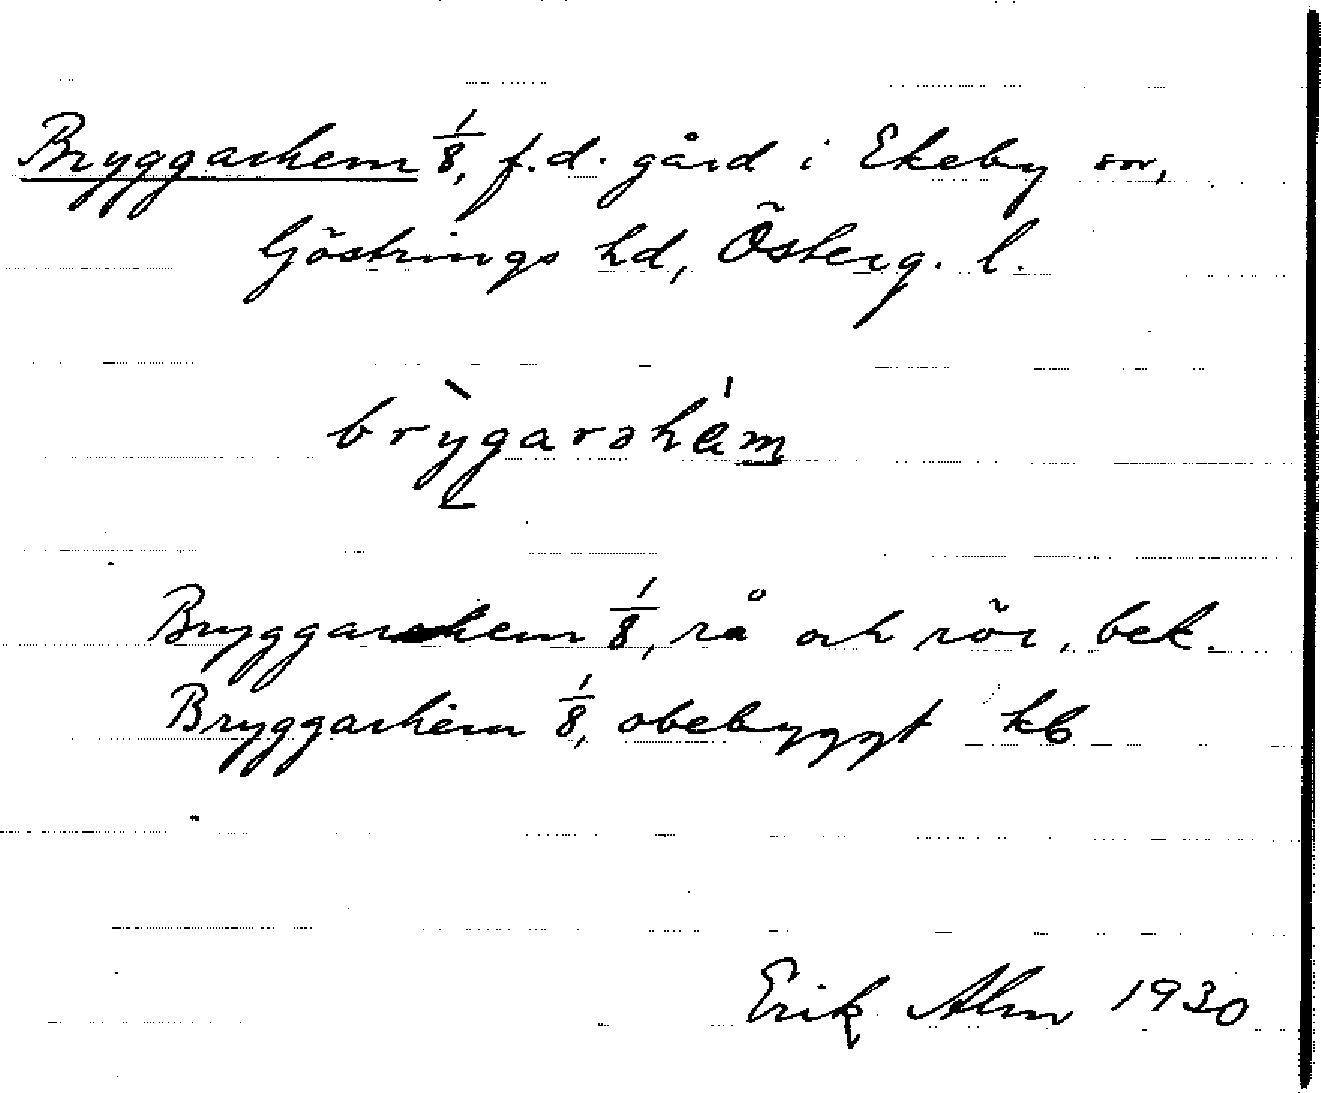 Bryggarhem 1/8, f.d. gård i Ekeby sn,
Göstrings hd, Österg. l.
brỳgarshém
Bryggarhem 1/8, rå och rör, bek.
Bryggarhem 1/8, obebyggt kb
Erik Alm 1930